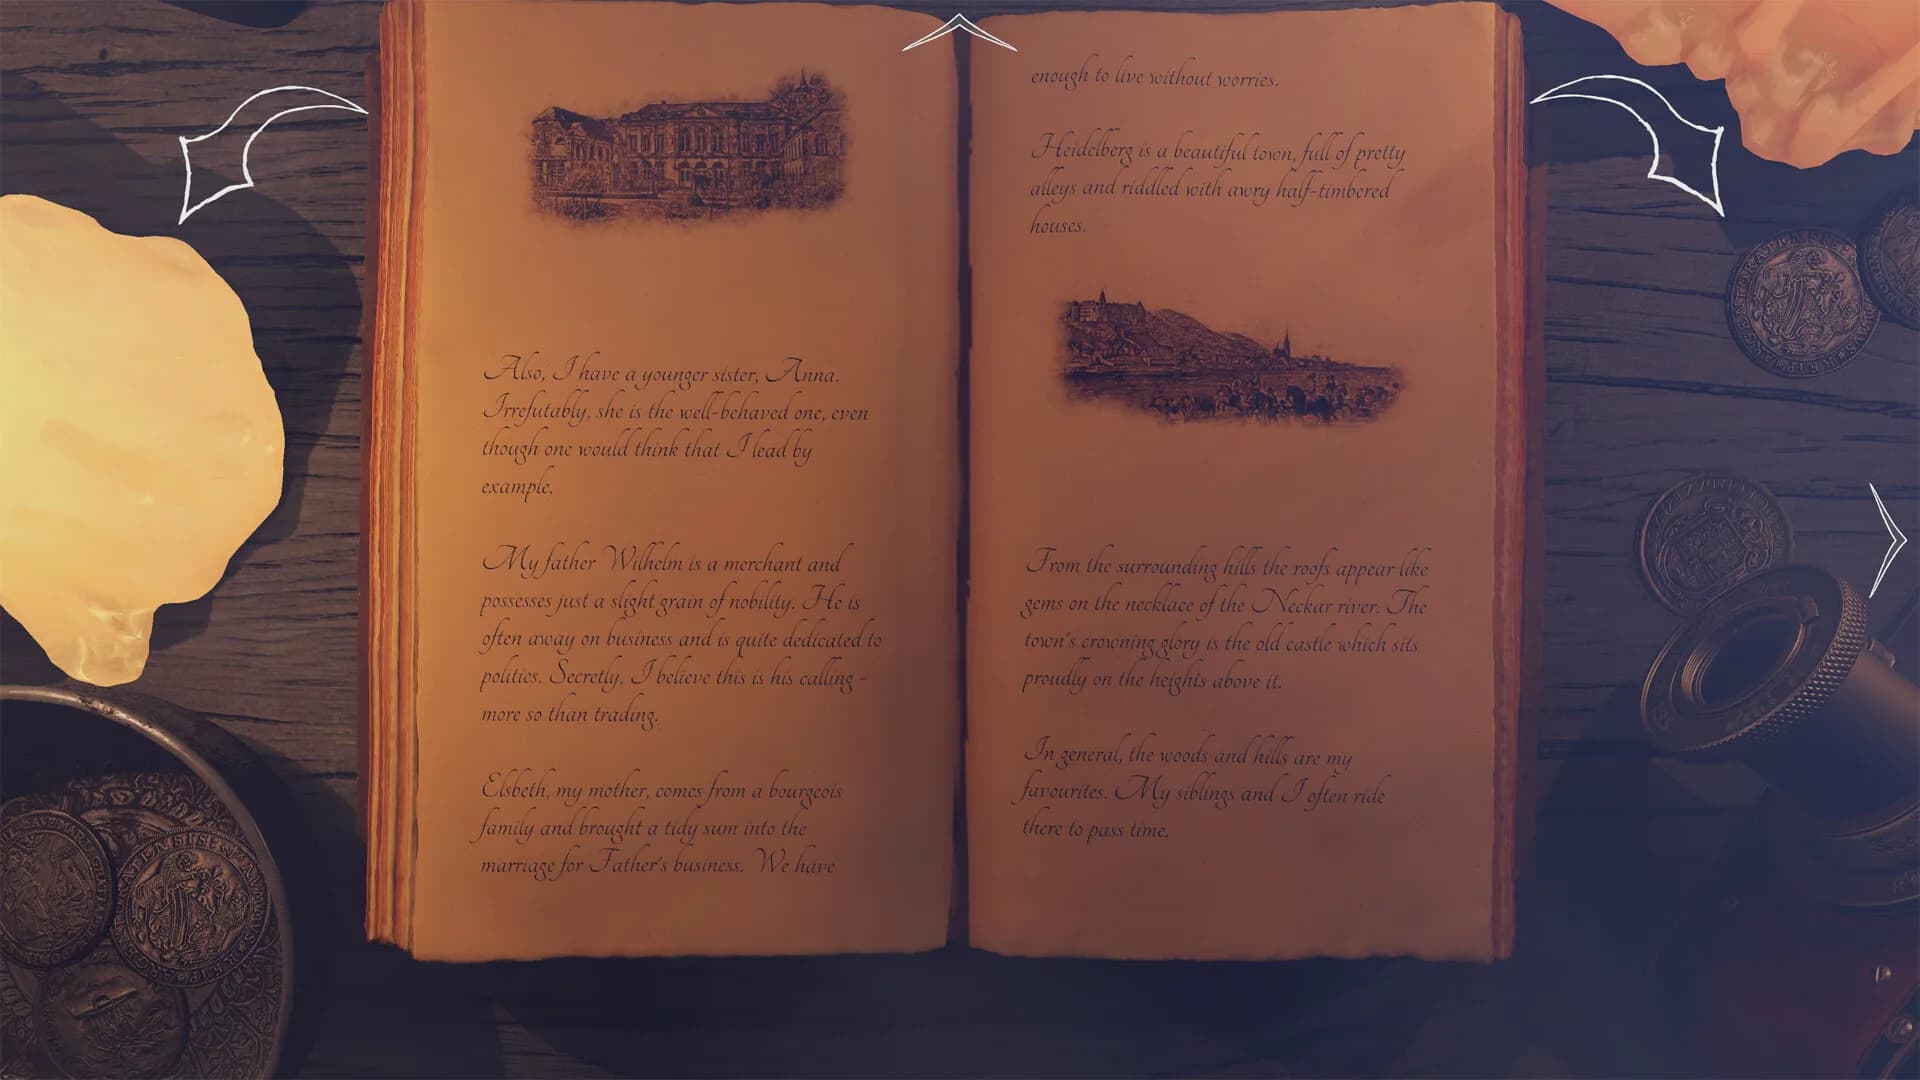 Also, I have a younger sister, Anna.
Irrefutably, she is the well-behaved one, even
though one would think that I lead by
example.
My father Wilhelm is a merchant and
possesses just a slight grain of nobility. He is
often away on business and is quite dedicated to
politics. Secretly, I believe this is his calling -
more so than trading.
Elsbeth, my mother, comes from a bourgeois
family and brought a tidy sum into the
marriage for Father's business. We have
enough to live without worries.
Heidelberg is a beautiful town, full of pretty
alleys and riddled with awry half-timbered
houses.
From the surrounding hills the roofs appear like
gems on the necklace of the Neckar river. The
town's crowning glory is the old castle which sits
proudly on the heights above it.
In general, the woods and hills are my
favourites. My siblings and I often ride
there to pass time.